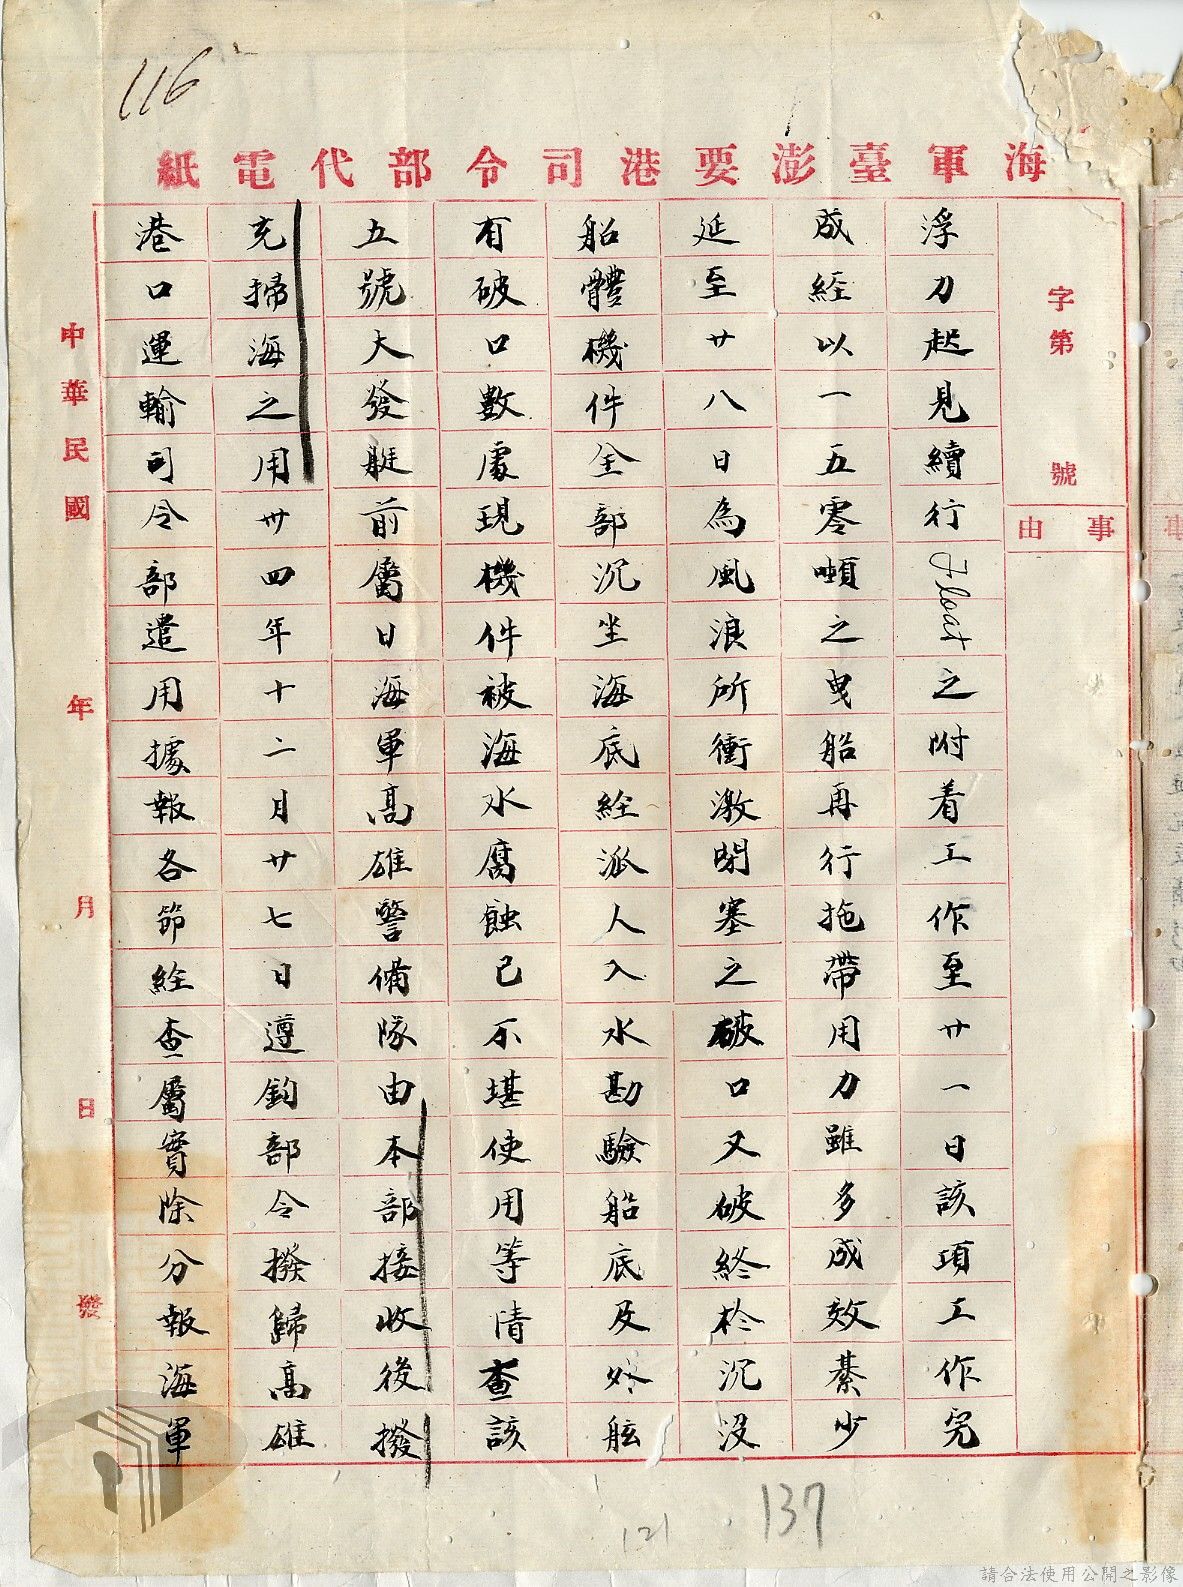 116
海軍臺澎要港司令部代電紙
字第 號
事由
浮力起見續行Float之附着工作至廿一日該項工作完
成經以一五零噸之曳船再行拖帶用力雖多成效綦少
延至廿八日為風浪所衝激閉塞之破口又破終於沉沒
船體機件全部沉坐海底經派人入水勘驗船底及外舷
有破口數處現機件被海水腐蝕已不堪使用等情查該
五號大發艇前屬日海軍高雄警備隊由本部接收後撥
充掃海之用卅四年十二月廿七日遵鈞部令撥歸高雄
港口運輸司令部遣用據報各節經查屬實除分報海軍
中華民國 年 月 日 發
137
121
請合法使用公開之影像